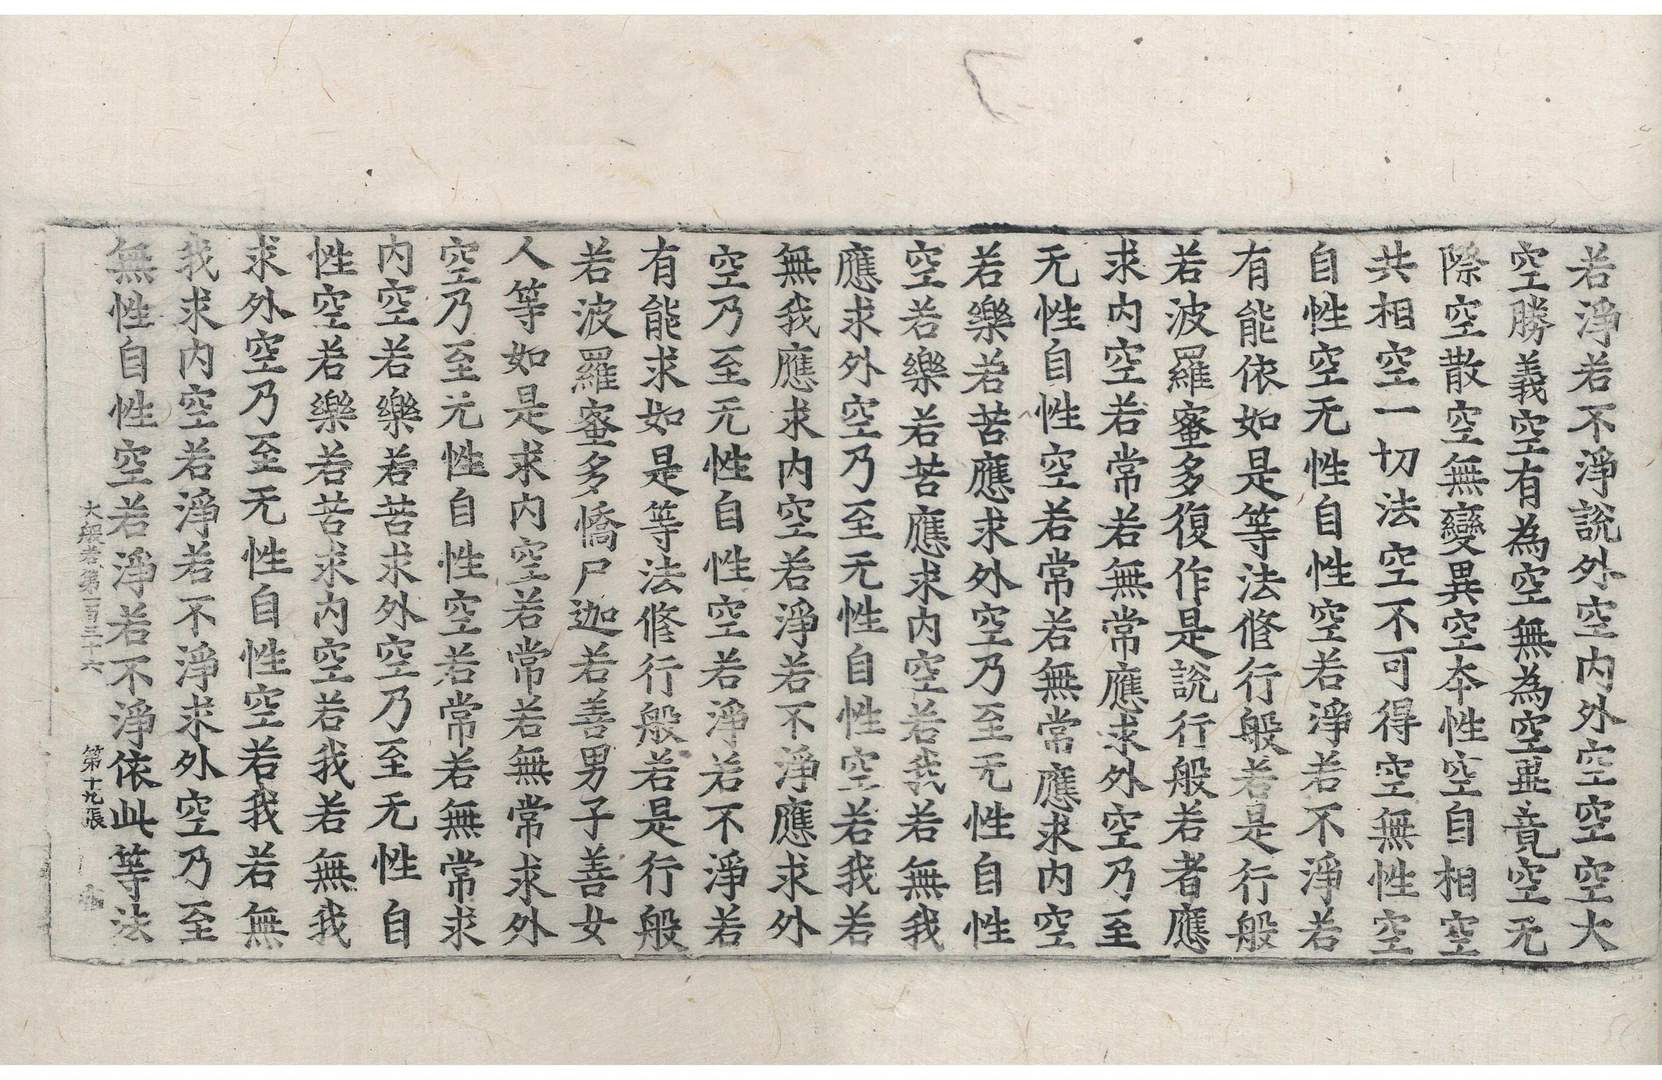 若淨若不淨說外空内外空空空大
空勝義空有為空無為空畢竟空无
際空散空無變異空夲性空自相空
共相空一切法空不可得空無性空
自性空无性自性空若淨若不淨若
有能依如是等法修行般若是行般
若波羅蜜多復作是說行般若者應
求内空若常若無常應求外空乃至
无性自性空若常若無常應求内空
若樂若苦應求外空乃至无性自性
空若樂若苦應求内空若我若無我
應求外空乃至无性自性空若我若
無我應求内空若淨若不淨應求外
空乃至无性自性空若淨若不淨若
有能求如是等法修行般若是行般
若波羅蜜多憍尸迦若善男子善女
人等如是求内空若常若無常求外
空乃至无性自性空若常若無常求
内空若樂若苦求外空乃至无性自
性空若樂若苦求内空若我若無我
求外空乃至无性自性空若我若無
我求内空若淨若不淨求外空乃至
無性自性空若淨若不淨依此等法
大般若第一百三十六 第十九張